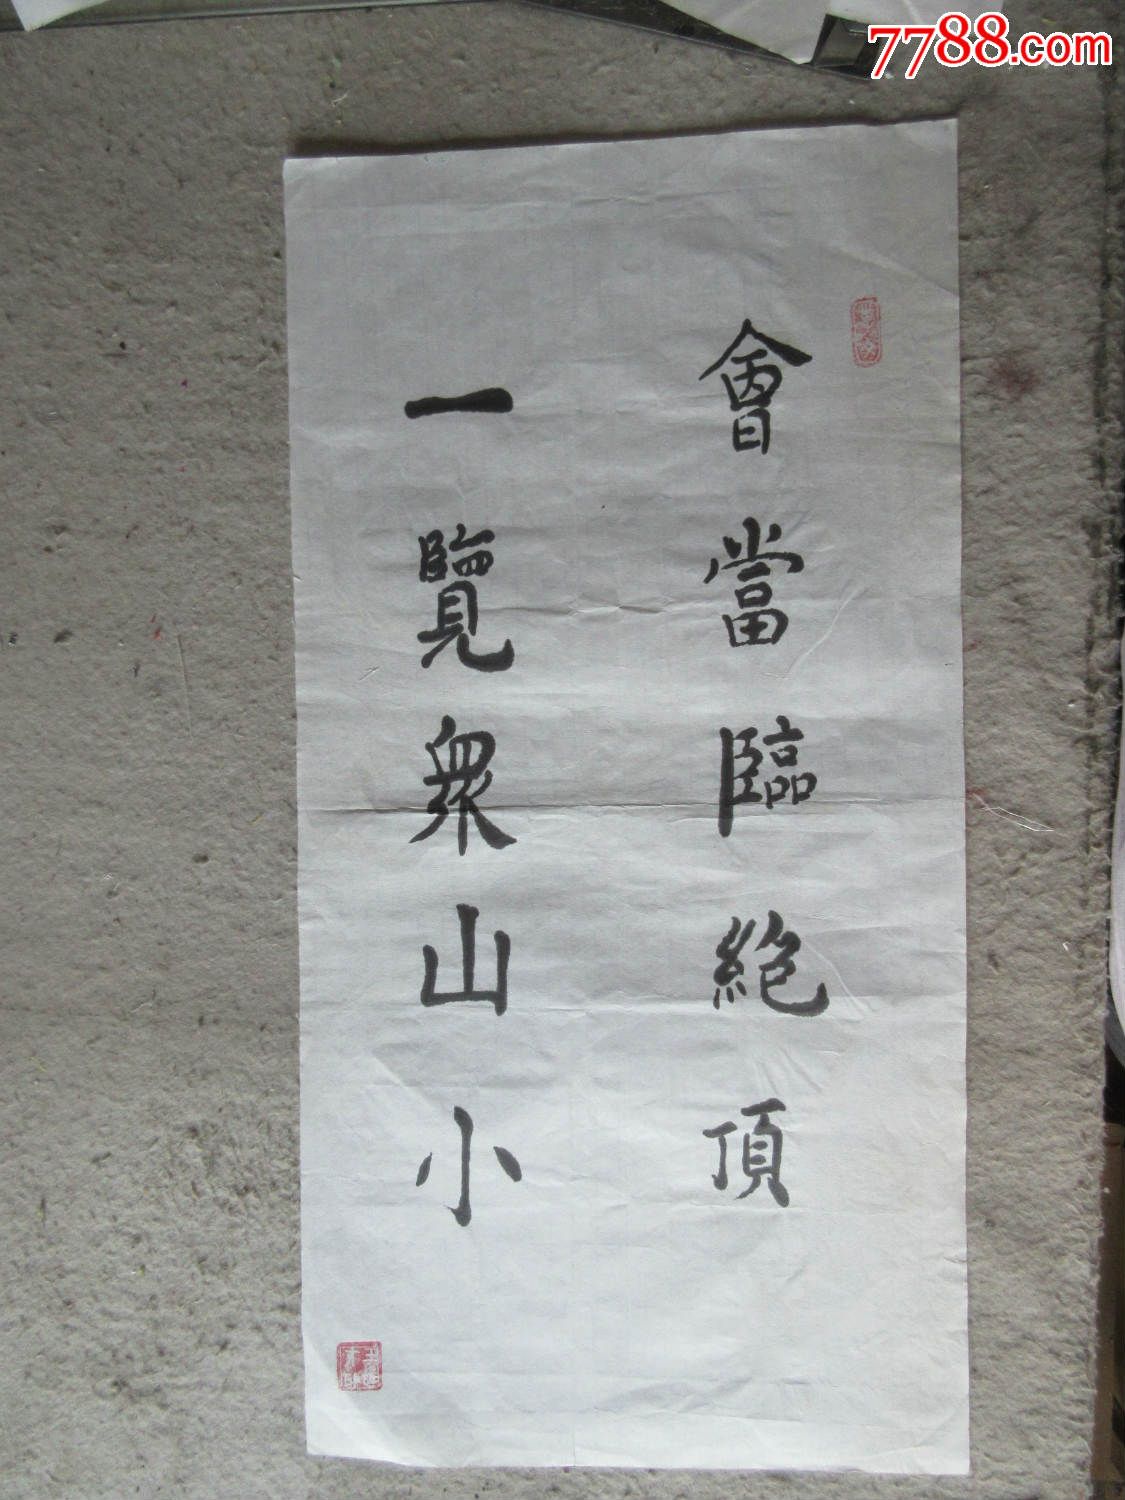 7788.com
會當臨絕頂
一覽衆山小